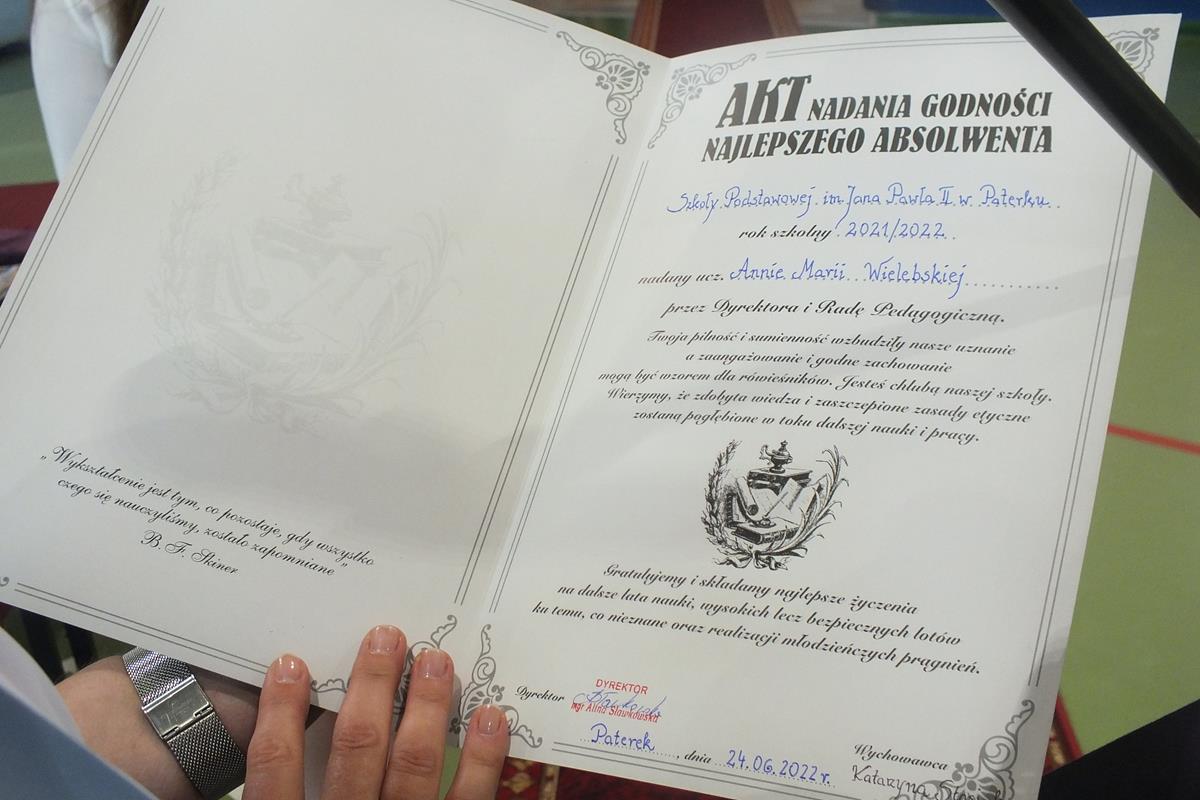 „Wykształcenie jest tym, co pozostaje, gdy wszystko
czego się nauczyliśmy, zostało zapomniane”
B. F. Skiner
AKT NADANIA GODNOŚCI
NAJLEPSZEGO ABSOLWENTA
Szkoły Podstawowej im. Jana Pawła II w Paterku
rok szkolny 2021/2022
nadany ucz. Annie Marii Wielebskiej
przez Dyrektora i Radę Pedagogiczną.
Twoja pilność i sumienność wzbudziły nasze uznanie
a zaangażowanie i godne zachowanie
mogą być wzorem dla rówieśników. Jesteś chlubą naszej szkoły.
Wierzymy, że zdobyta wiedza i zaszczepione zasady etyczne
zostaną pogłębione w toku dalszej nauki i pracy.
Gratulujemy i składamy najlepsze życzenia
na dalsze lata nauki, wysokich lecz bezpiecznych lotów
ku temu, co nieznane oraz realizacji młodzieńczych pragnień.
DYREKTOR
Dyrektor
mgr Alina Sławkowska
Paterek, dnia 24.06.2022 r.
Wychowawca
Katarzyna